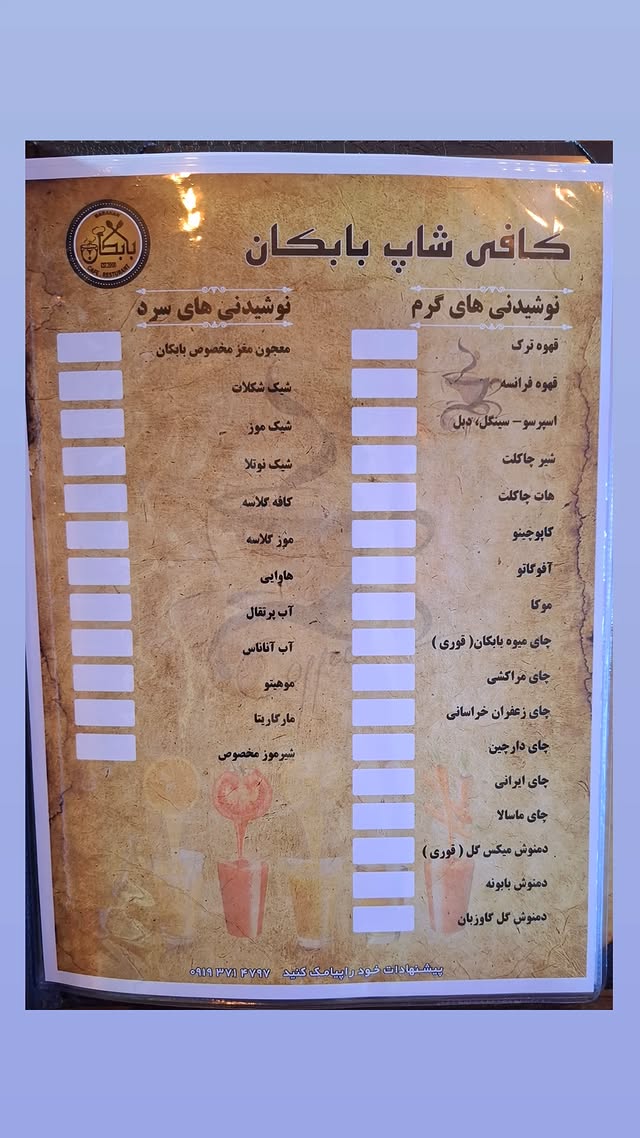 کافی شاپ بابکان
BABAKAN
بابکان
CAFE RESTURANT
نوشیدنی های گرم
قهوه ترک
قهوه فرانسه
اسپرسو- سینگل، دبل
شیر چاکلت
هات چاکلت
کاپوچینو
آفوگاتو
موکا
چای میوه بابکان( قوری )
چای مراکشی
چای زعفران خراسانی
چای دارچین
چای ایرانی
چای ماسالا
دمنوش میکس گل ( قوری )
دمنوش بابونه
دمنوش گل گاوزبان
نوشیدنی های سرد
معجون مغز مخصوص بابکان
شیک شکلات
شیک موز
شیک نوتلا
کافه گلاسه
موز گلاسه
هاوایی
آب پرتقال
آب آناناس
موهیتو
مارگاریتا
شیرموز مخصوص
Coffee
پیشنهادات خود را پیامک کنید ۰۹۱۹ ۳۷۱ ۴۷۹۷